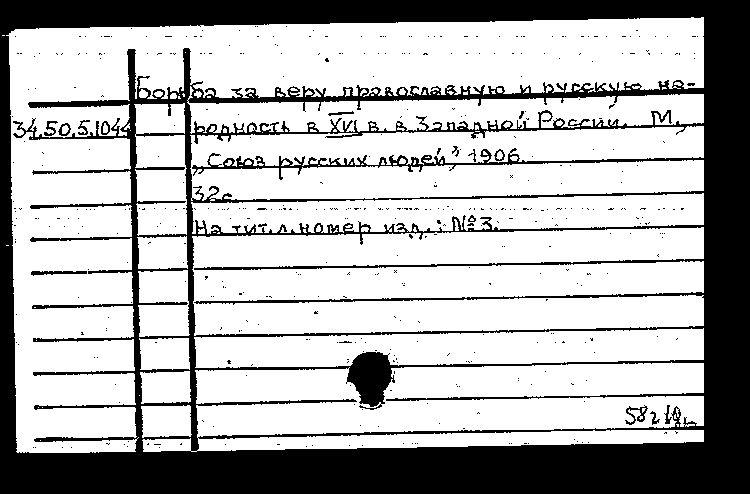 Борьба за веру православную и русскую на-
34.50.5.1044 родность в XVI в. в Западной России. М.,
„Союз русских людей", 1906.
32с.
На тит.л. номер изд.: №3.